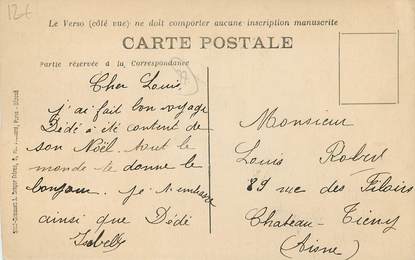 12€
Le Verso (côté vue) ne doit comporter aucune inscription manuscrite
CARTE POSTALE
Partie réservée à la Correspondance
Cher Louis
j'ai fait bon voyage
Dédé a été content de
son Noël. tout le
monde te donne le
bonjour. je t'embrasse
ainsi que Dédé
Isabelle
Monsieur
Louis
89 rue des Filoirs
Chateau-Tierry
(Aisne)